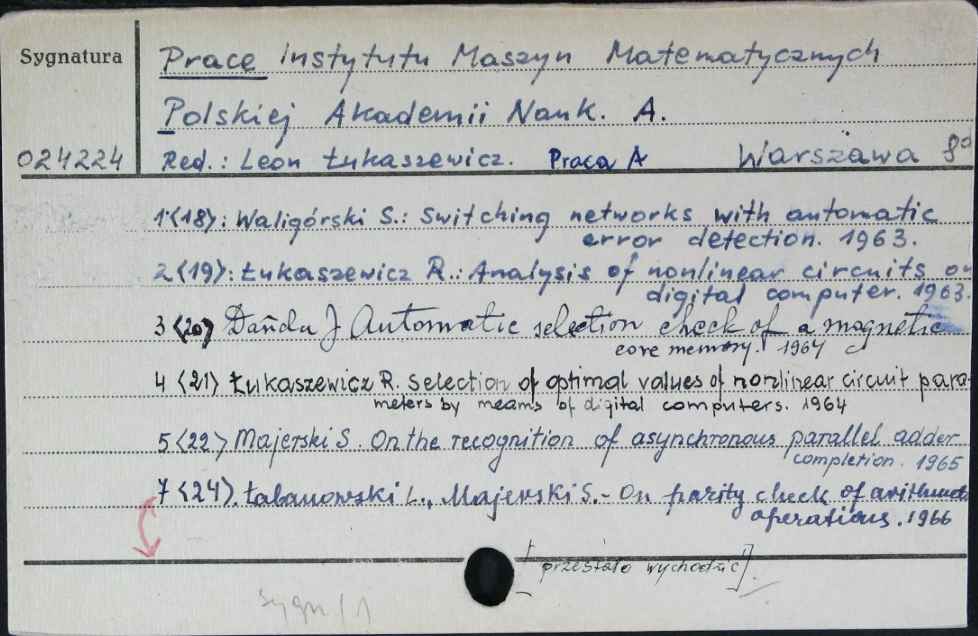 Sygnatura
Prace Instytutu Maszyn Matematycznych
Polskiej Akademii Nauk. A.
024224
Red.: Leon Łukaszewicz. Praca A Warszawa 8°
1<18>: Waligórski S.: Switching networks with automatic
error detection. 1963.
2<19>: Łukaszewicz R.: Analysis of nonlinear circuits on
digital computer. 1963.
3<20> Dańda J Automatic selection check of a magnetic
core memory. 1964
4<21> Łukaszewicz R. Selection of optimal values of nonlinear circuit para-
meters by means of digital computers. 1964
5<22> Majerski S. On the recognition of asynchronous parallel adder
completion. 1965
7<24>. Łabanowski L., Majerski S. - On parity check of arithmetic
operations. 1966
[przestało wychodzić]
sygn/1